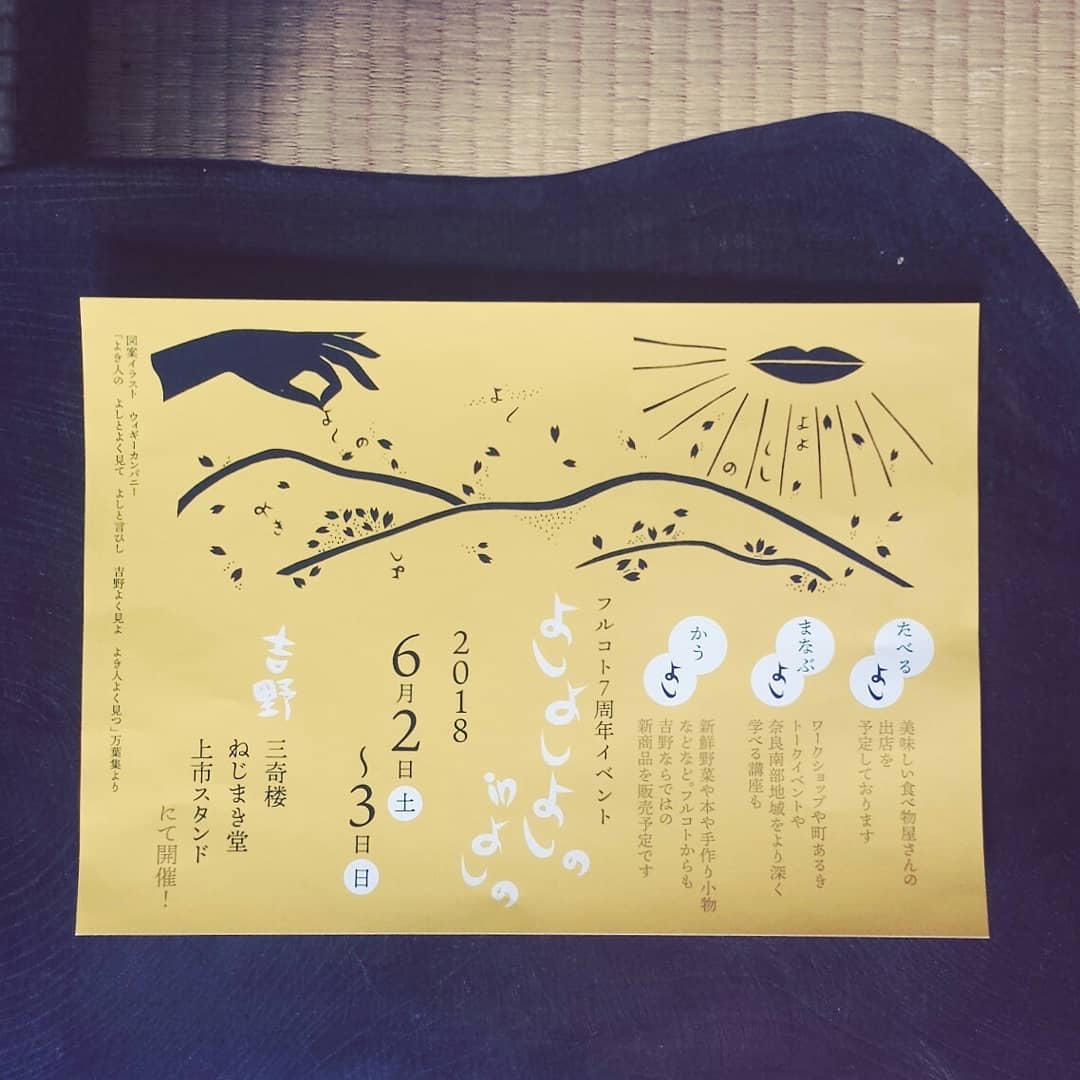 よしの
よし
よよ
しし
の
よさ
よし
たべる
よし
美味しい食べ物屋さんの
出店を
予定しております
まなぶ
よし
ワークショップや町あるき
トークイベントや
奈良南部地域をより深く
学べる講座も
かう
よし
新鮮野菜や本や手作り小物
などなど。フルコトからも
吉野ならではの
新商品を販売予定です
フルコト7周年イベント
よしよしよしの
inよしの
2018
6月2日土
～3日日
吉野
三奇楼
ねじまき堂
上市スタンド
にて開催！
図案イラスト　ウィギーカンパニー
「よき人の　よしとよく見て　よしと言ひし　吉野よく見よ　よき人よく見つ」万葉集より